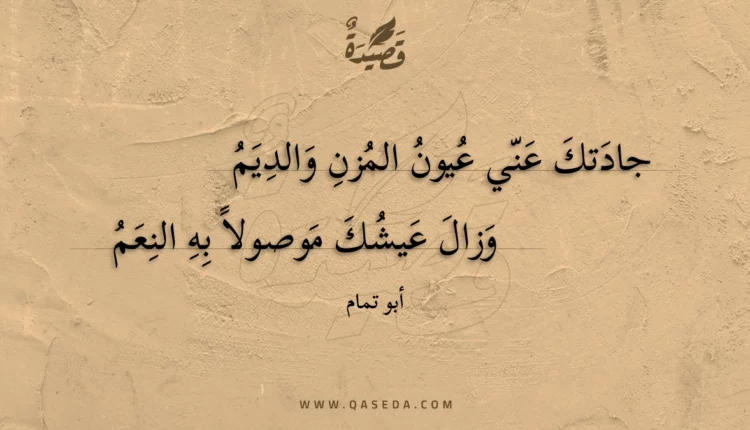 قَصِيدَةٌ
جادَتكَ عَنّي عُيونُ المُزنِ وَالدِيَمُ
وَزالَ عَيشُكَ مَوصولاً بِهِ النِعَمُ
أبو تمام
WWW.QASEDA.COM